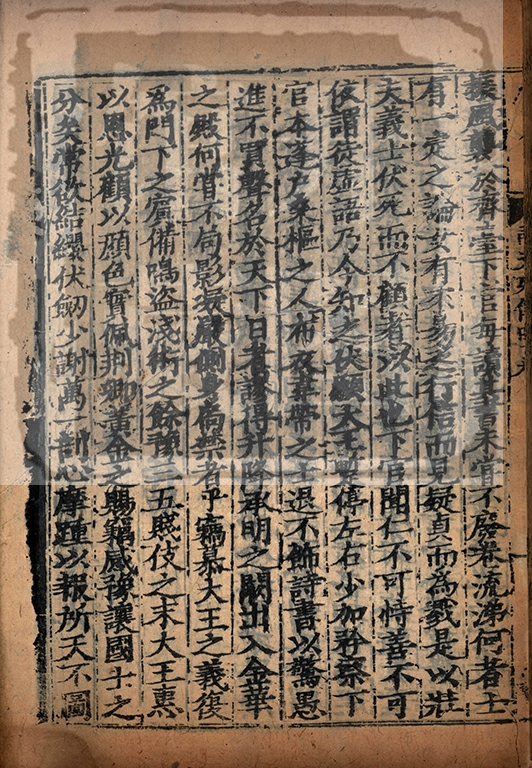 振風襲於齊臺下官每讀其書未嘗不廢卷流涕何者士
有一定之論女有不易之行信而見疑貞而為戮是以壯
夫義士伏死而不顧者以此也下官聞仁不可恃善不可
依謂徒虛語乃今知之伏願大王暫停左右少加矜察下
官本蓬户桑樞之人布衣韋帶之士退不飾詩書以驚愚
進不買聲名於天下日者謬得升降承明之闕出入金華
之殿何嘗不局影凝嚴側身扃禁者乎竊慕大王之義復
爲門下之賓備鳴盜淺術之餘豫三五賤伎之末大王惠
以恩光顧以顔色實佩荆卿黃金之賜竊感豫讓國士之
分矣常欲結纓伏劒少謝萬一剖心摩踵以報所天不圖